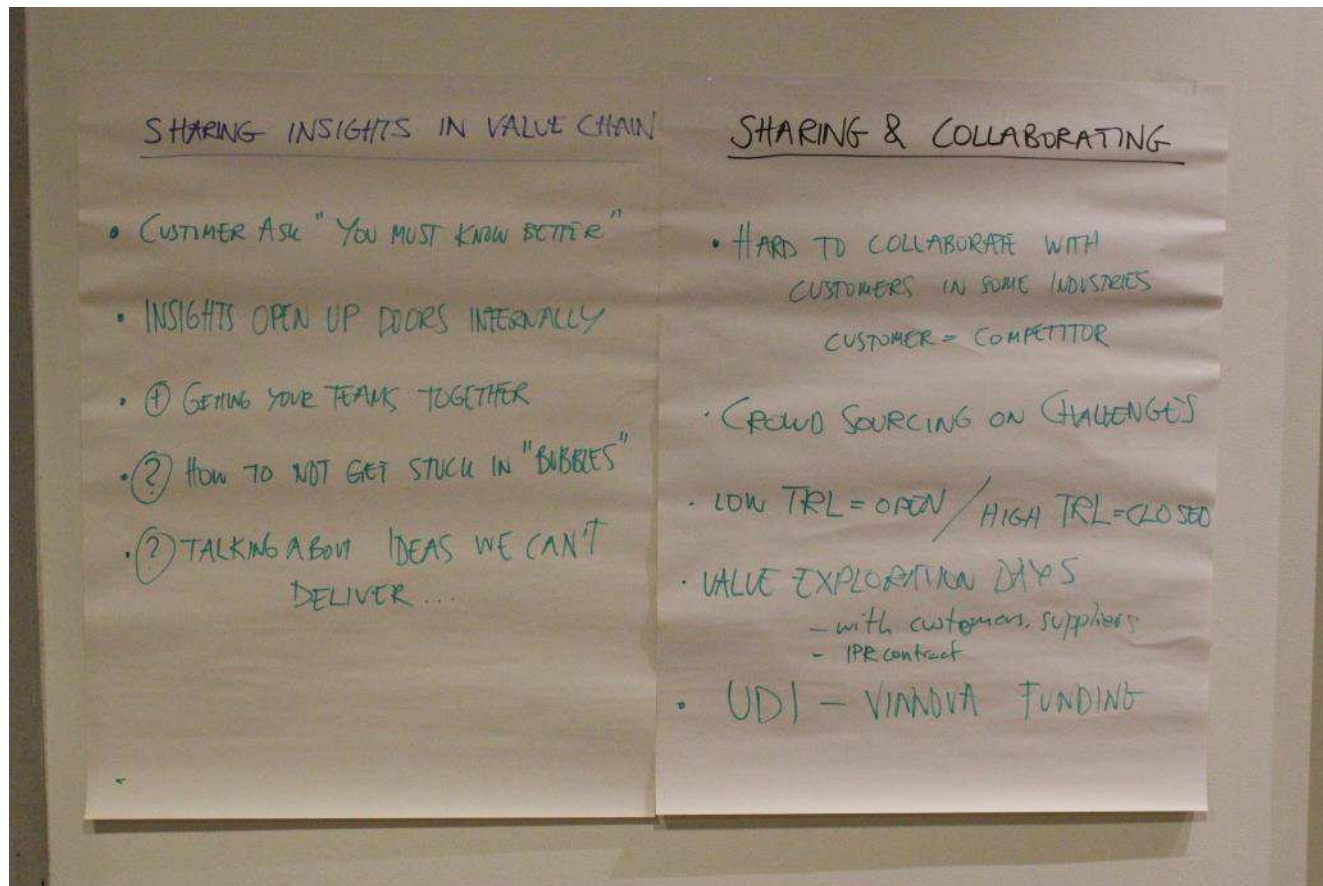 SHARING INSIGHTS IN VALUE CHAIN
• CUSTIMER ASK "YOU MUST KNOW BETTER"
• INSIGHTS OPEN UP DOORS INTERNALLY
• + GETTING YOUR TEAMS TOGETHER
• ? HOW TO NOT GET STUCK IN "BUBBLES"
• ? TALKING ABOUT IDEAS WE CAN'T
DELIVER...
SHARING & COLLABORATING
• HARD TO COLLABORATE WITH
CUSTOMERS IN SOME INDUSTRIES
CUSTOMER = COMPETITOR
• CROWD SOURCING ON CHALLENGES
• LOW TRL = OPEN / HIGH TRL = CLOSED
• VALUE EXPLORATION DAYS
- with customers, suppliers
- IPR contract
• UDI - VINNOVA FUNDING